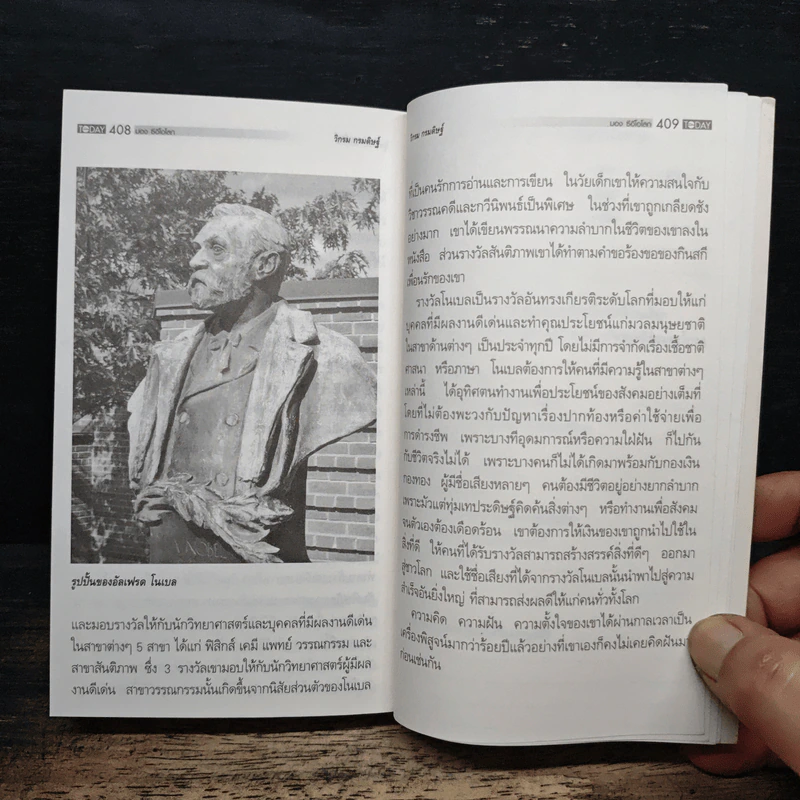 TODAY 408 มอง ซีอีโอโลก
วิกรม กรมดิษฐ์
รูปปั้นของอัลเฟรด โนเบล
และมอบรางวัลให้กับนักวิทยาศาสตร์และบุคคลที่มีผลงานดีเด่น
ในสาขาต่างๆ 5 สาขา ได้แก่ ฟิสิกส์ เคมี แพทย์ วรรณกรรม และ
สาขาสันติภาพ ซึ่ง 3 รางวัลเขามอบให้กับนักวิทยาศาสตร์ผู้มีผล
งานดีเด่น สาขาวรรณกรรมนั้นเกิดขึ้นจากนิสัยส่วนตัวของโนเบล
วิกรม กรมดิษฐ์
มอง ซีอีโอโลก 409 TODAY
ที่เป็นคนรักการอ่านและการเขียน ในวัยเด็กเขาให้ความสนใจกับ
วิชาวรรณคดีและกวีนิพนธ์เป็นพิเศษ ในช่วงที่เขาถูกเกลียดชัง
อย่างมาก เขาได้เขียนพรรณนาความลำบากในชีวิตของเขาลงใน
หนังสือ ส่วนรางวัลสันติภาพเขาได้ทำตามคำขอร้องขอของกินสกี
เพื่อนรักของเขา
รางวัลโนเบลเป็นรางวัลอันทรงเกียรติระดับโลกที่มอบให้แก่
บุคคลที่มีผลงานดีเด่นและทำคุณประโยชน์แก่มวลมนุษยชาติ
ในสาขาด้านต่างๆ เป็นประจำทุกปี โดยไม่มีการจำกัดเรื่องเชื้อชาติ
ศาสนา หรือภาษา โนเบลต้องการให้คนที่มีความรู้ในสาขาต่างๆ
เหล่านี้ ได้อุทิศตนทำงานเพื่อประโยชน์ของสังคมอย่างเต็มที่
โดยที่ไม่ต้องพะวงกับปัญหาเรื่องปากท้องหรือค่าใช้จ่ายเพื่อ
การดำรงชีพ เพราะบางทีอุดมการณ์หรือความใฝ่ฝัน ก็ไปกัน
กับชีวิตจริงไม่ได้ เพราะบางคนก็ไม่ได้เกิดมาพร้อมกับกองเงิน
กองทอง ผู้มีชื่อเสียงหลายๆ คนต้องมีชีวิตอยู่อย่างยากลำบาก
เพราะมัวแต่ทุ่มเทประดิษฐ์คิดค้นสิ่งต่างๆ หรือทำงานเพื่อสังคม
จนตัวเองต้องเดือดร้อน เขาต้องการให้เงินของเขาถูกนำไปใช้ใน
สิ่งที่ดี ให้คนที่ได้รับรางวัลสามารถสร้างสรรค์สิ่งที่ดีๆ ออกมา
สู่ชาวโลก และใช้ชื่อเสียงที่ได้จากรางวัลโนเบลนั้นนำพาไปสู่ความ
สำเร็จอันยิ่งใหญ่ ที่สามารถส่งผลดีให้แก่คนทั่วทั้งโลก
ความคิด ความฝัน ความตั้งใจของเขาได้ผ่านกาลเวลาเป็น
เครื่องพิสูจน์มากว่าร้อยปีแล้วอย่างที่เขาเองก็คงไม่เคยคิดฝันมา
ก่อนเช่นกัน